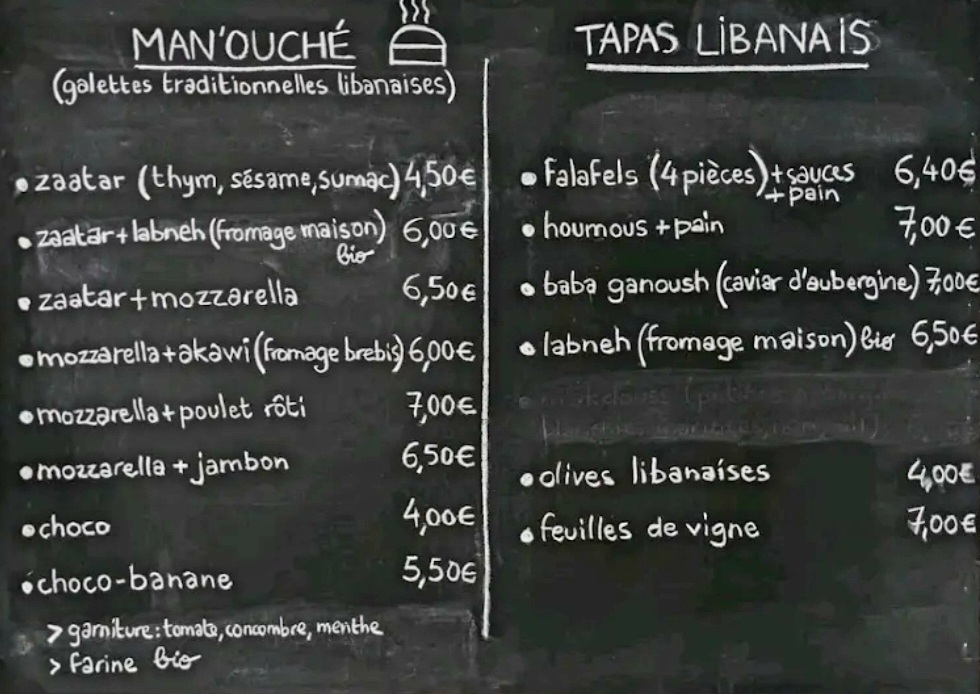 MAN'OUCHÉ
(galettes traditionnelles libanaises)
• zaatar (thym, sésame, sumac) 4,50€
• zaatar + labneh (fromage maison) 6,00€
bio
• zaatar + mozzarella 6,50€
• mozzarella + akawi (fromage brebis) 6,00€
• mozzarella + poulet rôti 7,00€
• mozzarella + jambon 6,50€
• choco 4,00€
• choco-banane 5,50€
> garniture: tomate, concombre, menthe
> farine bio
TAPAS LIBANAIS
• falafels (4 pièces) + sauces 6,40€
+ pain
• houmous + pain 7,00€
• baba ganoush (caviar d'aubergine) 7,00€
• labneh (fromage maison) bio 6,50€
• olives libanaises 4,00€
• feuilles de vigne 7,00€